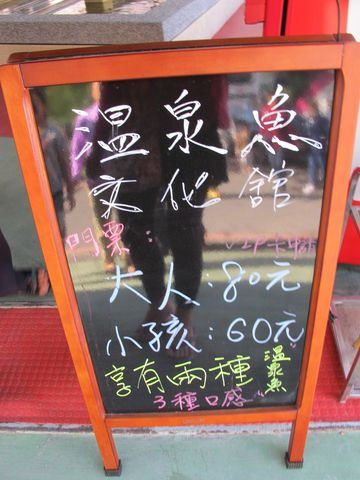 溫泉魚
文化館
門票：
大人：80元
小孩：60元
享有兩種溫泉魚
3種口感